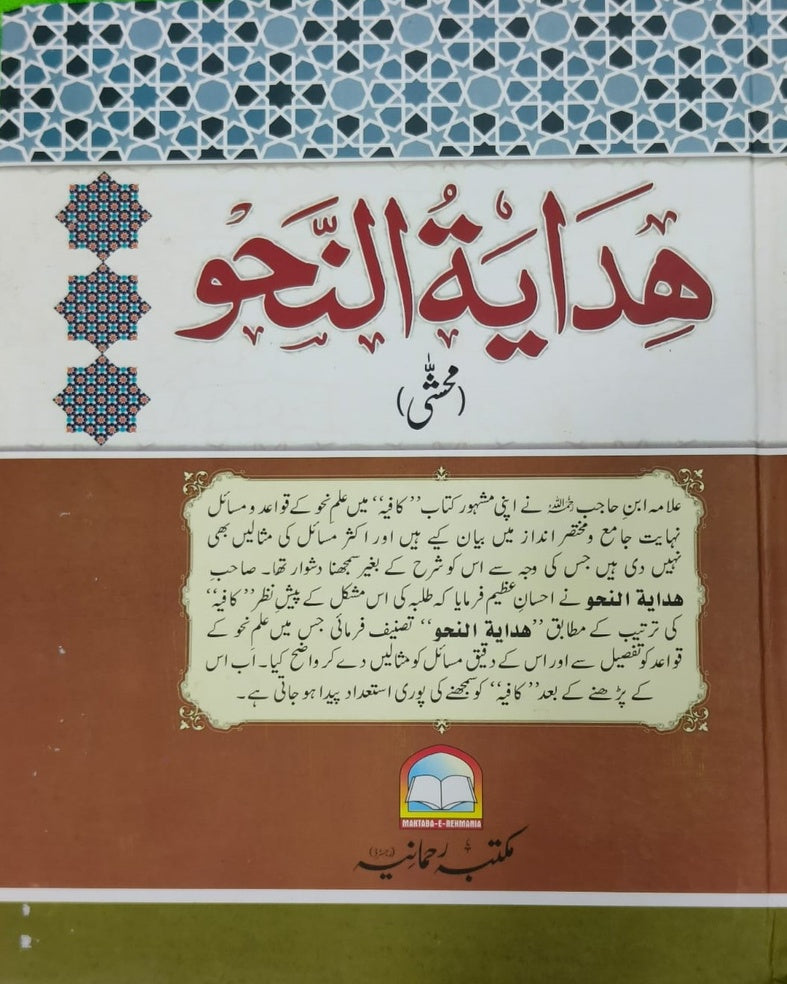 هِدَايَةُ النَّحو
(محشّٰی)
علامہ ابنِ حاجب رحمہ اللہ نے اپنی مشہور کتاب ”کافیہ“ میں علمِ نحو کے قواعد و مسائل
نہایت جامع و مختصر انداز میں بیان کیے ہیں اور اکثر مسائل کی مثالیں بھی
نہیں دی ہیں جس کی وجہ سے اس کو شرح کے بغیر سمجھنا دشوار تھا۔ صاحبِ
هداية النحو نے احسانِ عظیم فرمایا کہ طلبہ کی اس مشکل کے پیشِ نظر ”کافیہ“
کی ترتیب کے مطابق ”هداية النحو“ تصنیف فرمائی جس میں علمِ نحو کے
قواعد کو تفصیل سے اور اس کے دقیق مسائل کو مثالیں دے کر واضح کیا۔ اب اس
کے پڑھنے کے بعد ”کافیہ“ کو سمجھنے کی پوری استعداد پیدا ہو جاتی ہے۔
MAKTABA-E-REHMANIA
مکتبہ رحمانیہ (رجسٹرڈ)